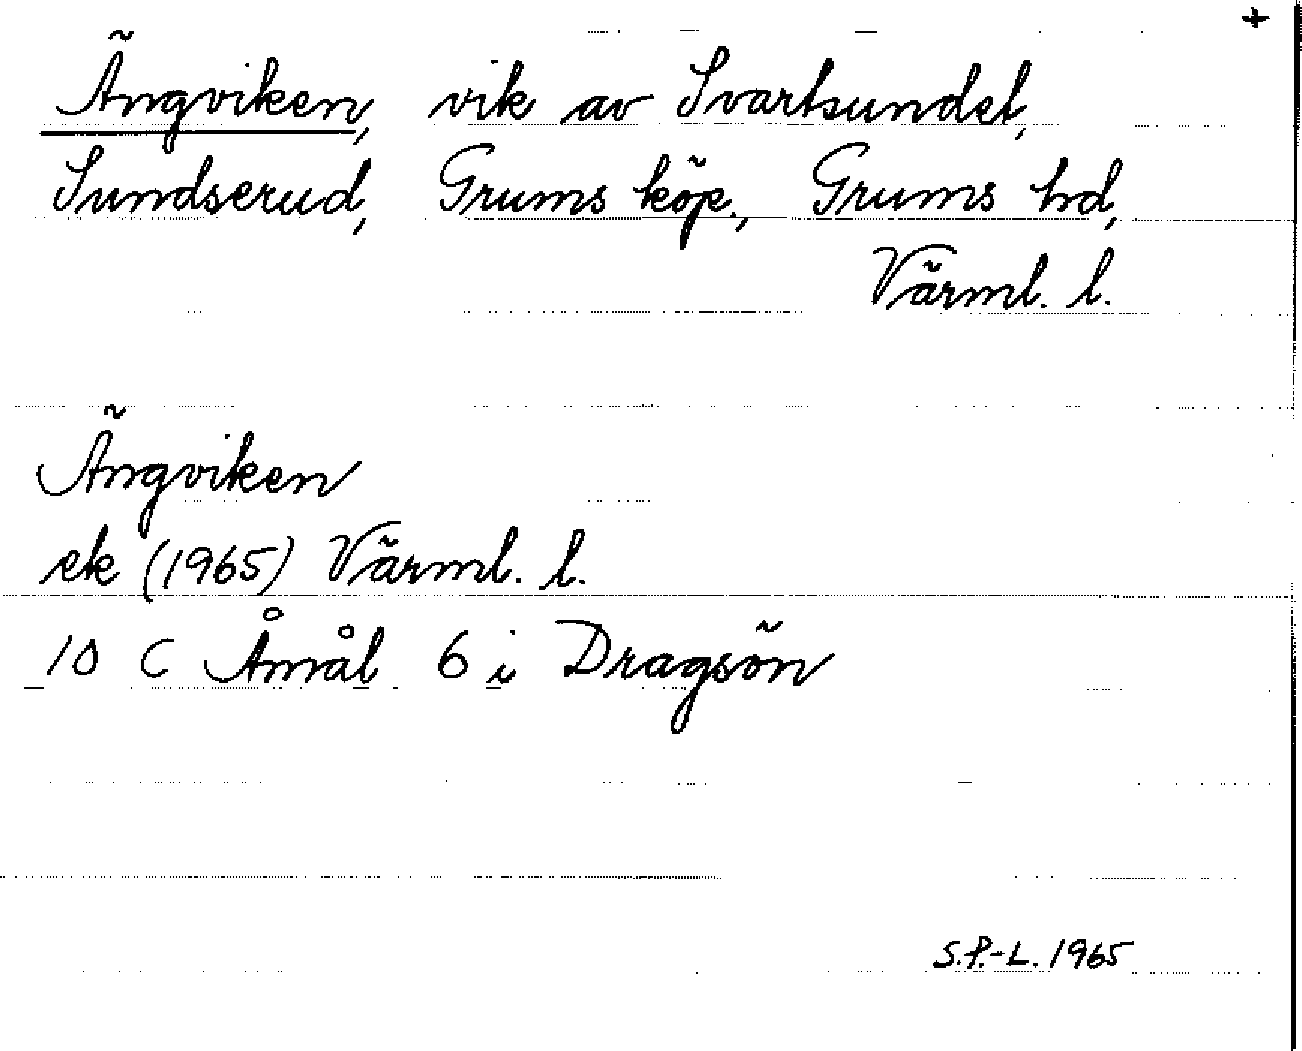 +
Ängviken, vik av Svartsundet,
Sundserud, Grums köp., Grums hd,
Värml. l.
Ängviken
ek (1965) Värml. l.
10 C Åmål 6 i Dragsön
S.P.-L. 1965